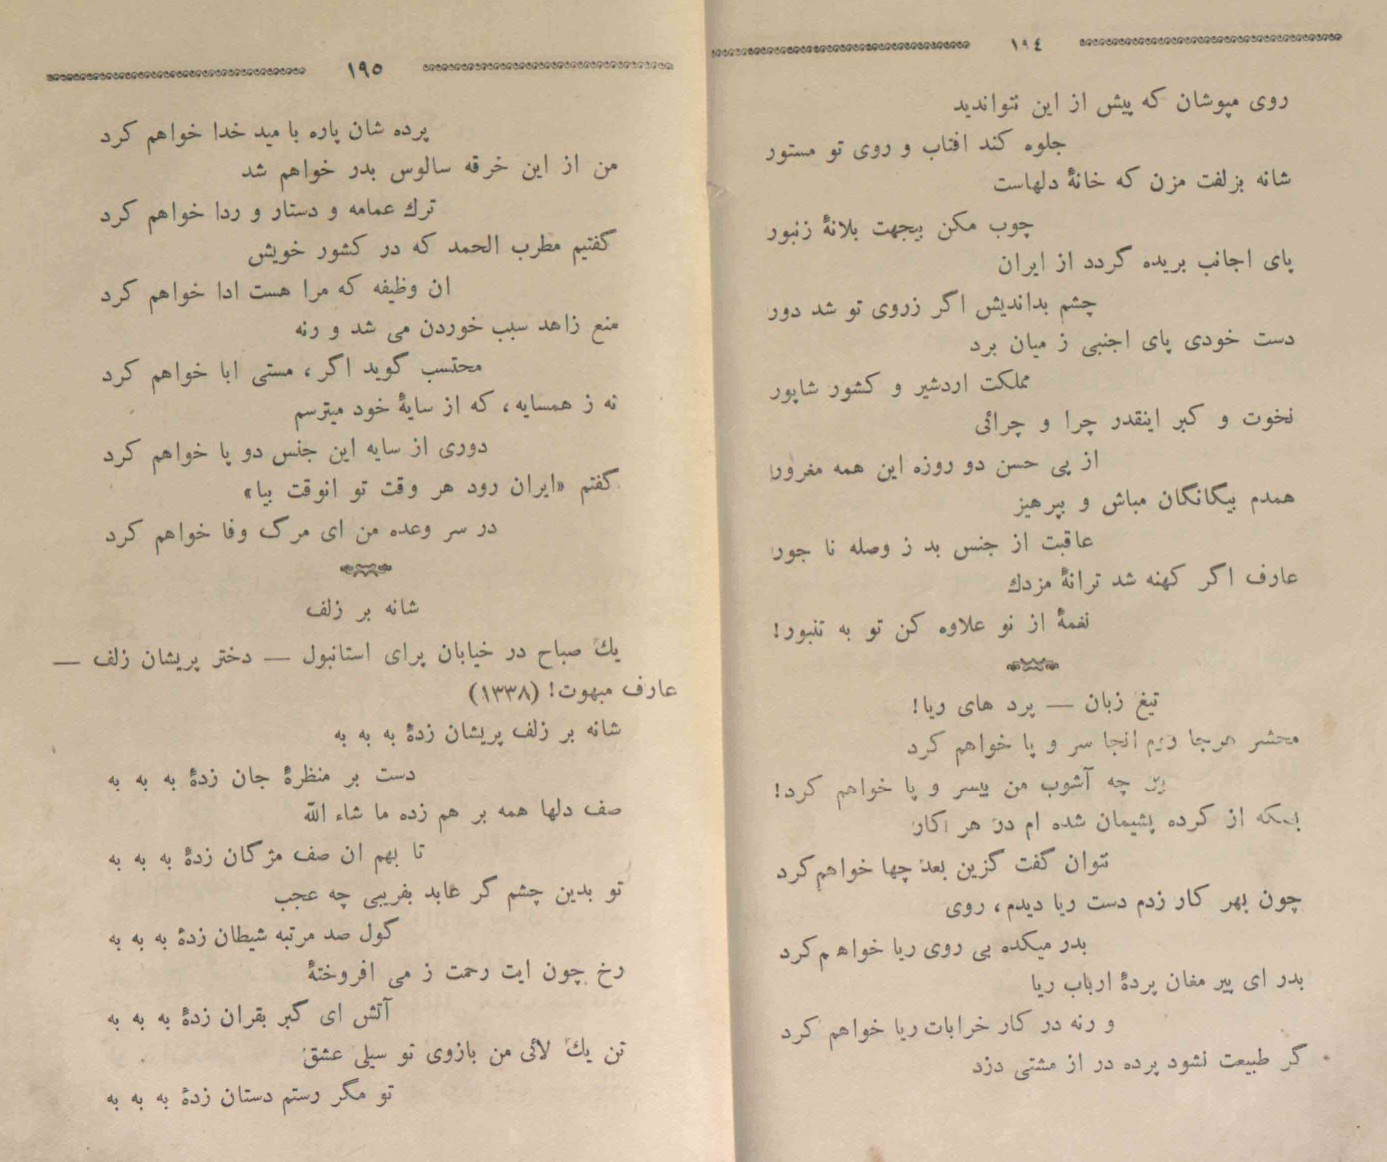 ١٩٤
روی مپوشان که پیش از این نتواندید
جلوه کند افتاب و روی تو مستور
شانه بزلفت مزن که خانهٔ دلهاست
چوب مکن بیجهت بلانهٔ زنبور
پای اجانب بریده گردد از ایران
چشم بداندیش اگر زروی تو شد دور
دست خودی پای اجنبی ز میان برد
مملکت اردشیر و کشور شاپور
نخوت و کبر اینقدر چرا و چرائی
از پی حسن دو روزه این همه مغرور
همدم بیگانگان مباش و بپرهیز
عاقبت از جنس بد ز وصله نا جور
عارف اگر کهنه شد ترانهٔ مزدك
نغمهٔ از نو علاوه کن تو به تنبور!
تیغ زبان — پرد های ریا!
محشر هرجا روم انجا سر و پا خواهم کرد
چه آشوب من بیسر و پا خواهم کرد!
بسکه از کرده پشیمان شده ام در هر کار
نتوان گفت گزین بعد چها خواهم کرد
چون بهر کار زدم دست ریا دیدم، روی
بدر میکده بی روی ریا خواهم کرد
بدر ای پیر مغان پردهٔ ارباب ریا
و رنه در کار خرابات ریا خواهم کرد
گر طبیعت نشود پرده در از مشتی دزد
١٩٥
پرده شان پاره با مید خدا خواهم کرد
من از این خرقه سالوس بدر خواهم شد
ترك عمامه و دستار و ردا خواهم کرد
گفتیم مطرب الحمد که در کشور خویش
ان وظیفه که مرا هست ادا خواهم کرد
منع زاهد سبب خوردن می شد و رنه
محتسب گوید اگر، مستی ابا خواهم کرد
نه ز همسایه، که از سایهٔ خود میترسم
دوری از سایه این جنس دو پا خواهم کرد
گفتم «ایران رود هر وقت تو انوقت بیا»
در سر وعده من ای مرگ وفا خواهم کرد
شانه بر زلف
یك صباح در خیابان پرای استانبول — دختر پریشان زلف —
عارف مبهوت! (١٣٣٨)
شانه بر زلف پریشان زدهٔ به به به
دست بر منظرهٔ جان زدهٔ به به به
صف دلها همه بر هم زده ما شاء الله
تا بهم ان صف مژگان زدهٔ به به به
تو بدین چشم گر عابد بفریبی چه عجب
کول صد مرتبه شیطان زدهٔ به به به
رخ چون ایت رحمت ز می افروختهٔ
آتش ای گبر بقران زدهٔ به به به
تن یك لائی من بازوی تو سیلی عشق
تو مگر رستم دستان زدهٔ به به به